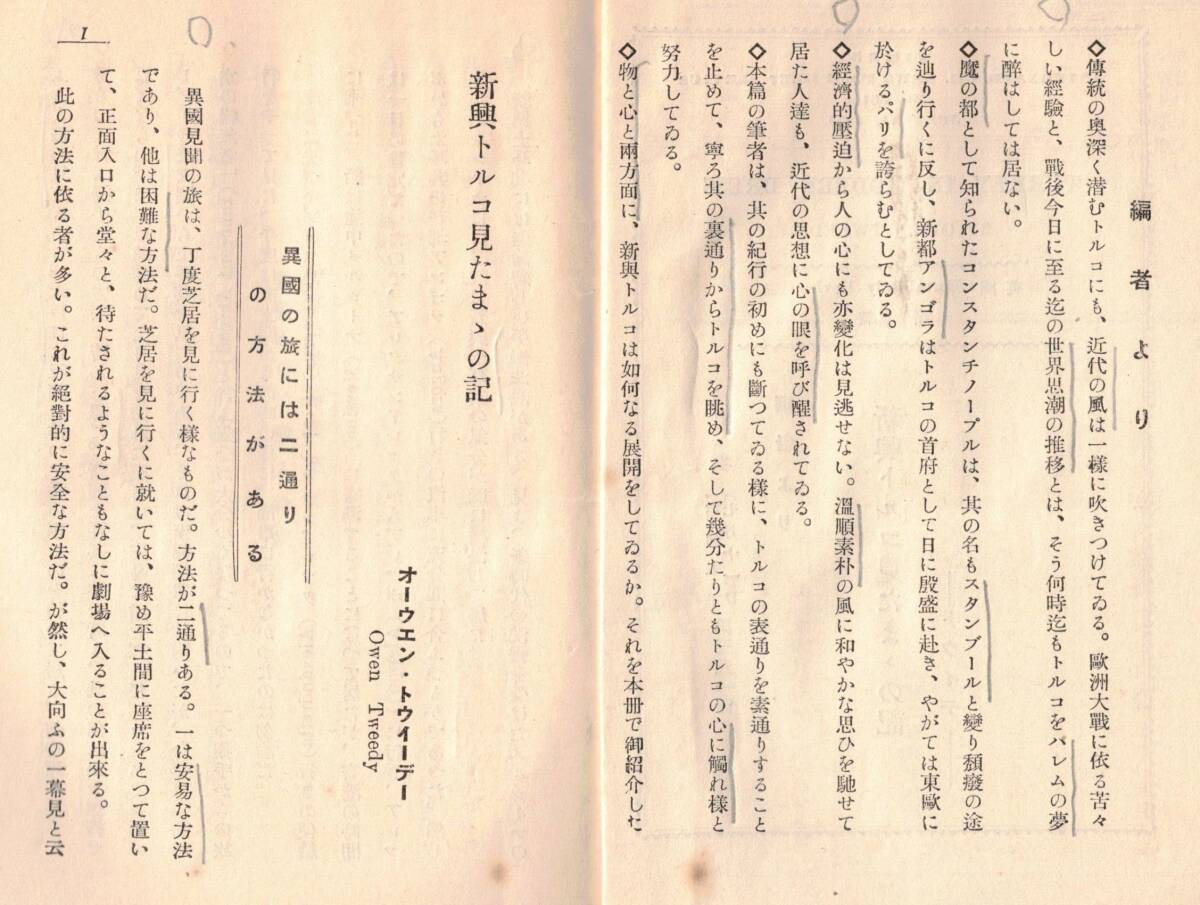 編者より
◇傳統の奥深く潜むトルコにも、近代の風は一樣に吹きつけてゐる。歐洲大戰に依る苦々
しい經驗と、戰後今日に至る迄の世界思潮の推移とは、そう何時迄もトルコをパレムの夢
に醉はしては居ない。
◇魔の都として知られたコンスタンチノープルは、其の名もスタンブールと變り頽廢の途
を辿り行くに反し、新都アンゴラはトルコの首府として日に殷盛に赴き、やがては東歐に
於けるパリを誇らむとしてゐる。
◇經濟的壓迫から人の心にも亦變化は見逃せない。溫順素朴の風に和やかな思ひを馳せて
居た人達も、近代の思想に心の眼を呼び醒されてゐる。
◇本篇の筆者は、其の紀行の初めにも斷つてゐる樣に、トルコの表通りを素通りすること
を止めて、寧ろ其の裏通りからトルコを眺め、そして幾分たりともトルコの心に觸れ樣と
努力してゐる。
◇物と心と兩方面に、新興トルコは如何なる展開をしてゐるか。それを本冊で御紹介した
新興トルコ見たまゝの記
オーウエン・トウイーデー
Owen Tweedy
異國の旅には二通り
の方法がある
異國見聞の旅は、丁度芝居を見に行く樣なものだ。方法が二通りある。一は安易な方法
であり、他は困難な方法だ。芝居を見に行くに就いては、豫め平土間に座席をとつて置い
て、正面入口から堂々と、待たされるようなこともなしに劇場へ入ることが出來る。
此の方法に依る者が多い。これが絕對的に安全な方法だ。が然し、大向ふの一幕見と云
1